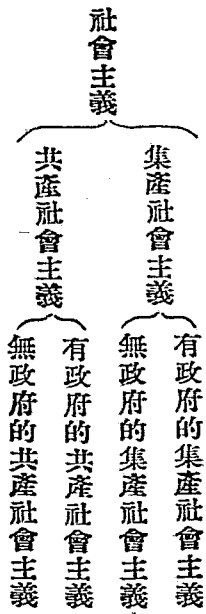 社會主義
集產社會主義
共產社會主義
有政府的集產社會主義
無政府的集產社會主義
有政府的共產社會主義
無政府的共產社會主義